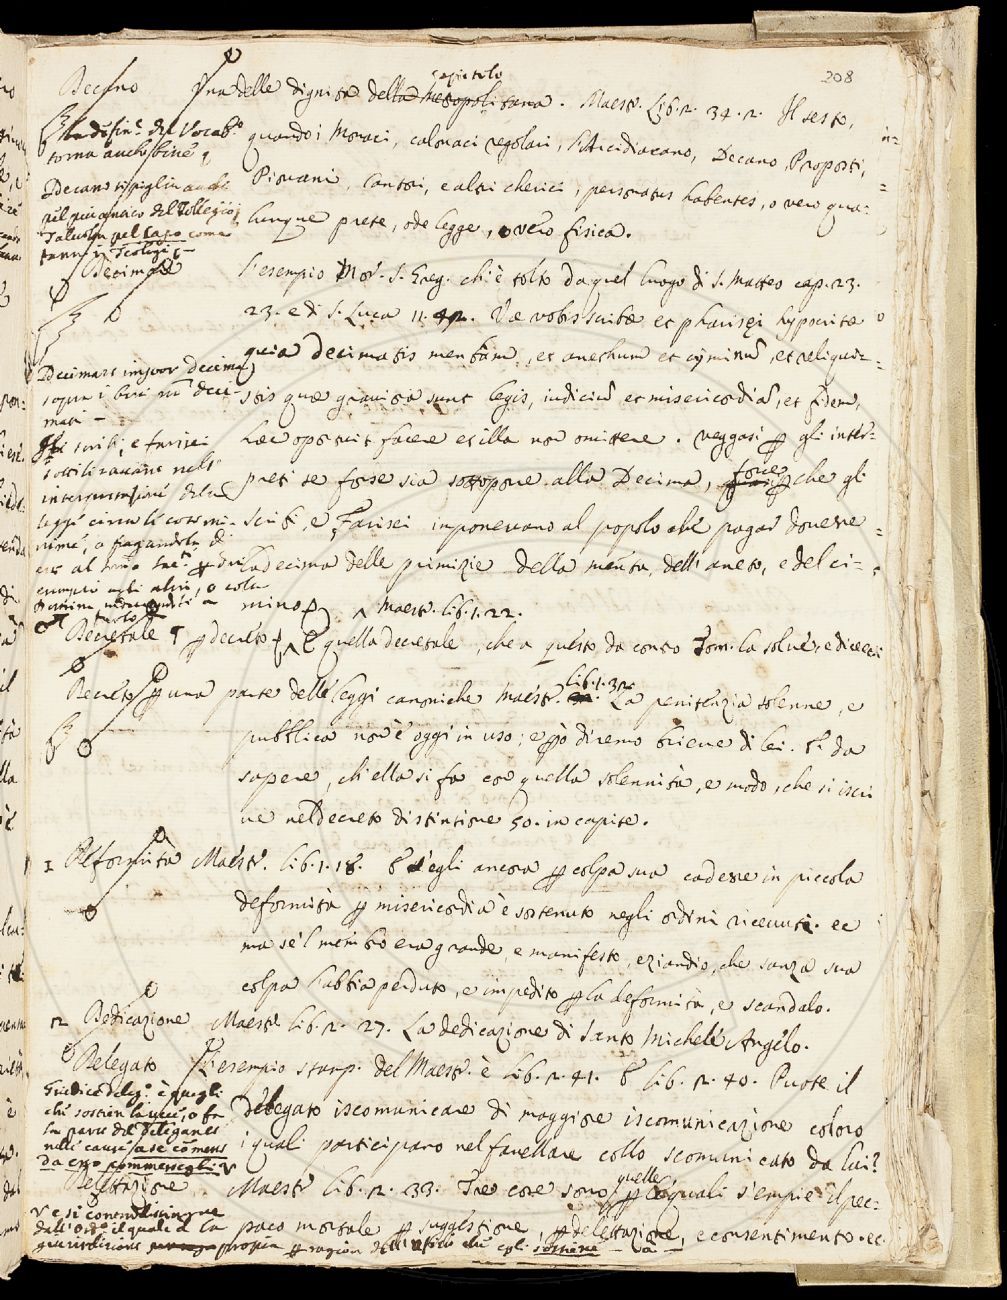 208
Capitolo
Decano Una delle dignità della Metropolitana. Maestr. Lib. 2. 34. 2. Il sesto,
quando i Monaci, calonaci regolari, l'Arcidiacano, Decano, Proposti,
Piovani, Cantori, e altri cherici, personatus habentes, o vero qua-
lunque prete, ode legge, o vero fisica.
la difin.e del Vocab.o
torna anche bene
Decano si piglia anche
nel più antico del Collegio,
Talvolta pel Capo come
Teologi
Decimare L'esempio S. Greg. ch'è tolto da quel luogo di S. Matteo cap. 23.
23. e di S. Luca 11. 42. Væ vobis scribæ et pharisęi hypocritæ
quia decimatis mentham, et anethum et cyminũ, et reliqui-
stis quæ graviora sunt legis, iudiciũ et misericordiã, et fidem,
hæc oportuit facere et illa non omittere. Veggasi gli inter-
preti se forse sia sottoporre alla Decima, forse che gli
Scribi, e Farisei imponevano al popolo che pagar dovesse
la decima delle primizie della menta, dell'aneto, e del ci-
mino Maestr. lib. 1. 22.
Decimare impor decima
sopra i beni nõ deci-
mati
scribi, e farisei
sottilizzavano nelle
interpretazioni delle
leggi circa le cose mi-
nime, o pagandole
esempio agli altri, o
Decretale decreto E quella decretale, che a questo da conto Tom. la solve, e dice
Decreto una parte delle leggi canoniche Maestr. lib. 1. 32. La penitenzia solenne, e
pubblica non è oggi in uso; e però diremo brieve di lei. È da
sapere, ch'ella si fa con quella solennità, e modo, che si iscri
ve nel decreto distintione 50. in capite.
1 Deformità Maestr. lib. 1. 18. E s'egli ancora per colpa sua cadesse in piccola
deformità per misericordia è sostenuto negli ordini ricevuti. ec
ma se 'l membro era grande, e manifesto, eziandio, che sanza sua
colpa l'abbia perduto, e impedito per la deformità, e scandalo.
2 Dedicazione Maestr. lib. 2. 27. La dedicazione di Santo Michele Angelo.
Delegato L'esempio stamp. del Maestr. è lib. 2. 41. E lib. 2. 40. Puote il
delegato iscomunicare di maggiore iscomunicazione coloro
i quali participano nel favellare collo scomunicato da lui?
Giudice deleg.o è quegli
che sostien la vece, o fa
la parte del Deleganti
nelle cause a se com̃ess
da esso commessegli
Delettazione Maestr. lib. 2. 33. Tre cose sono quelle per le quali s'empie il pec-
cato mortale per suggestione, per delettazione, e consentimento. ec.
e si contradistingue
dall'Ord.o il quale à la
giurisdizione propria per ragion dell'ufizio che egli sostiene